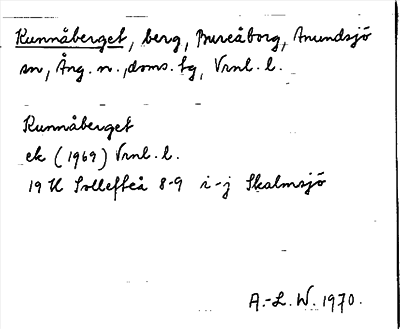 Runnåberget, berg, Bureåborg, Anundsjö
sn, Ång. n., doms. tg, Vrnl. l.
Runnåberget
ek (1969) Vrnl. l.
19 H Sollefteå 8-9 i-j Skalmsjö
A.-L. W. 1970.